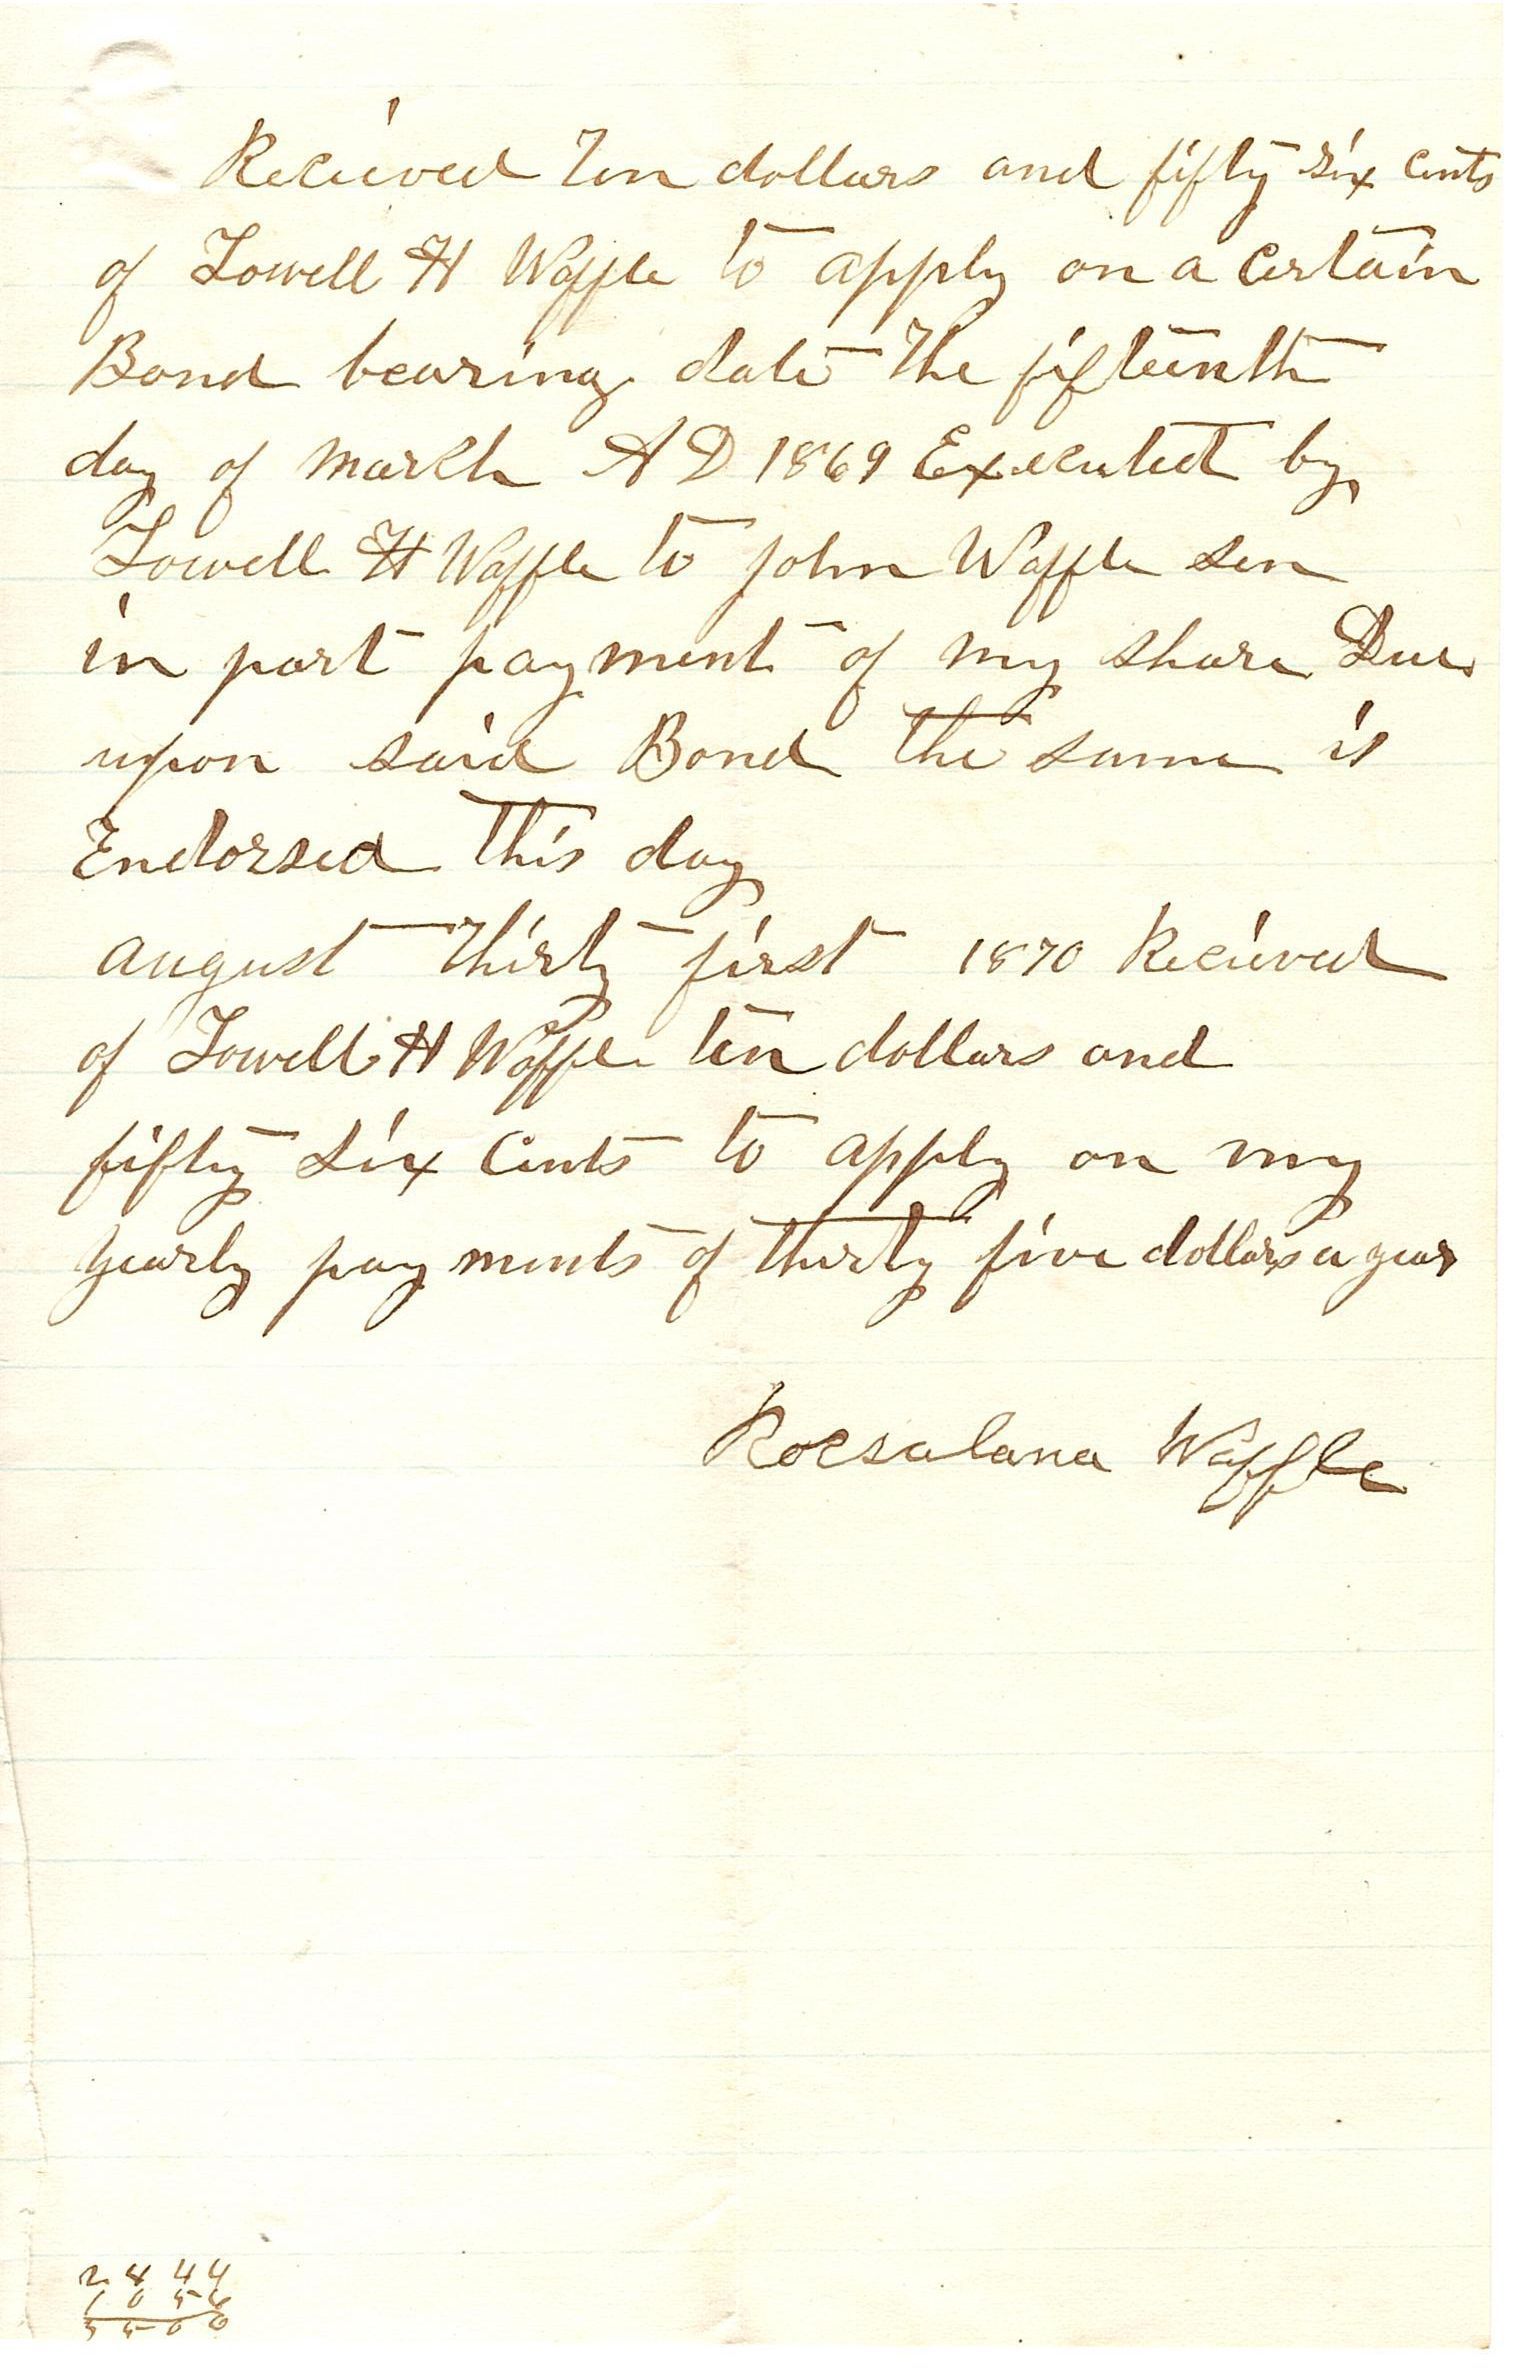 Recieved Ten dollars and fifty six cents
of Lowell H Waffle to apply on a Certain
Bond bearing date The fifteenth
day of March A D 1869 Executed by
Lowell H Waffle to John Waffle sen
in part payment of my share Due
upon said Bond the same is
Endorsed This day
August Thirty first 1870 Recieved
of Lowell H Waffle ten dollars and
fifty six Cents to apply on my
yearly payments of thirty five dollars a year
Rocsalana Waffle
2 4 4 4
1 0 5 6
3 5 0 0